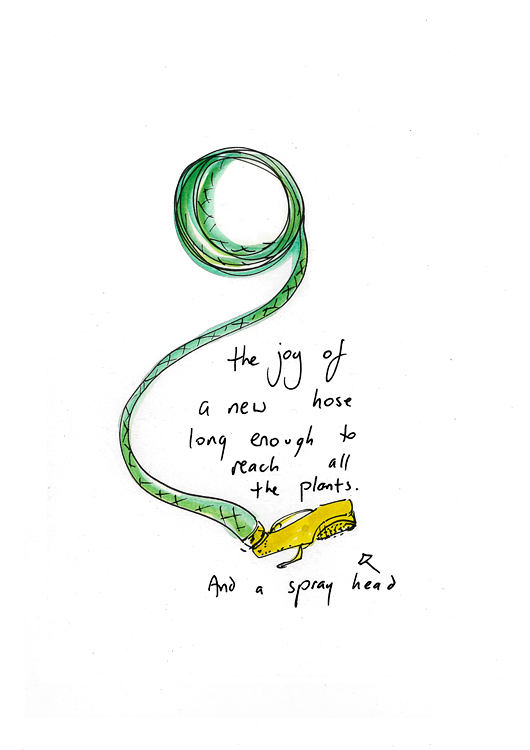 the joy of
a new hose
long enough to
reach all
the plants.
And a spray head